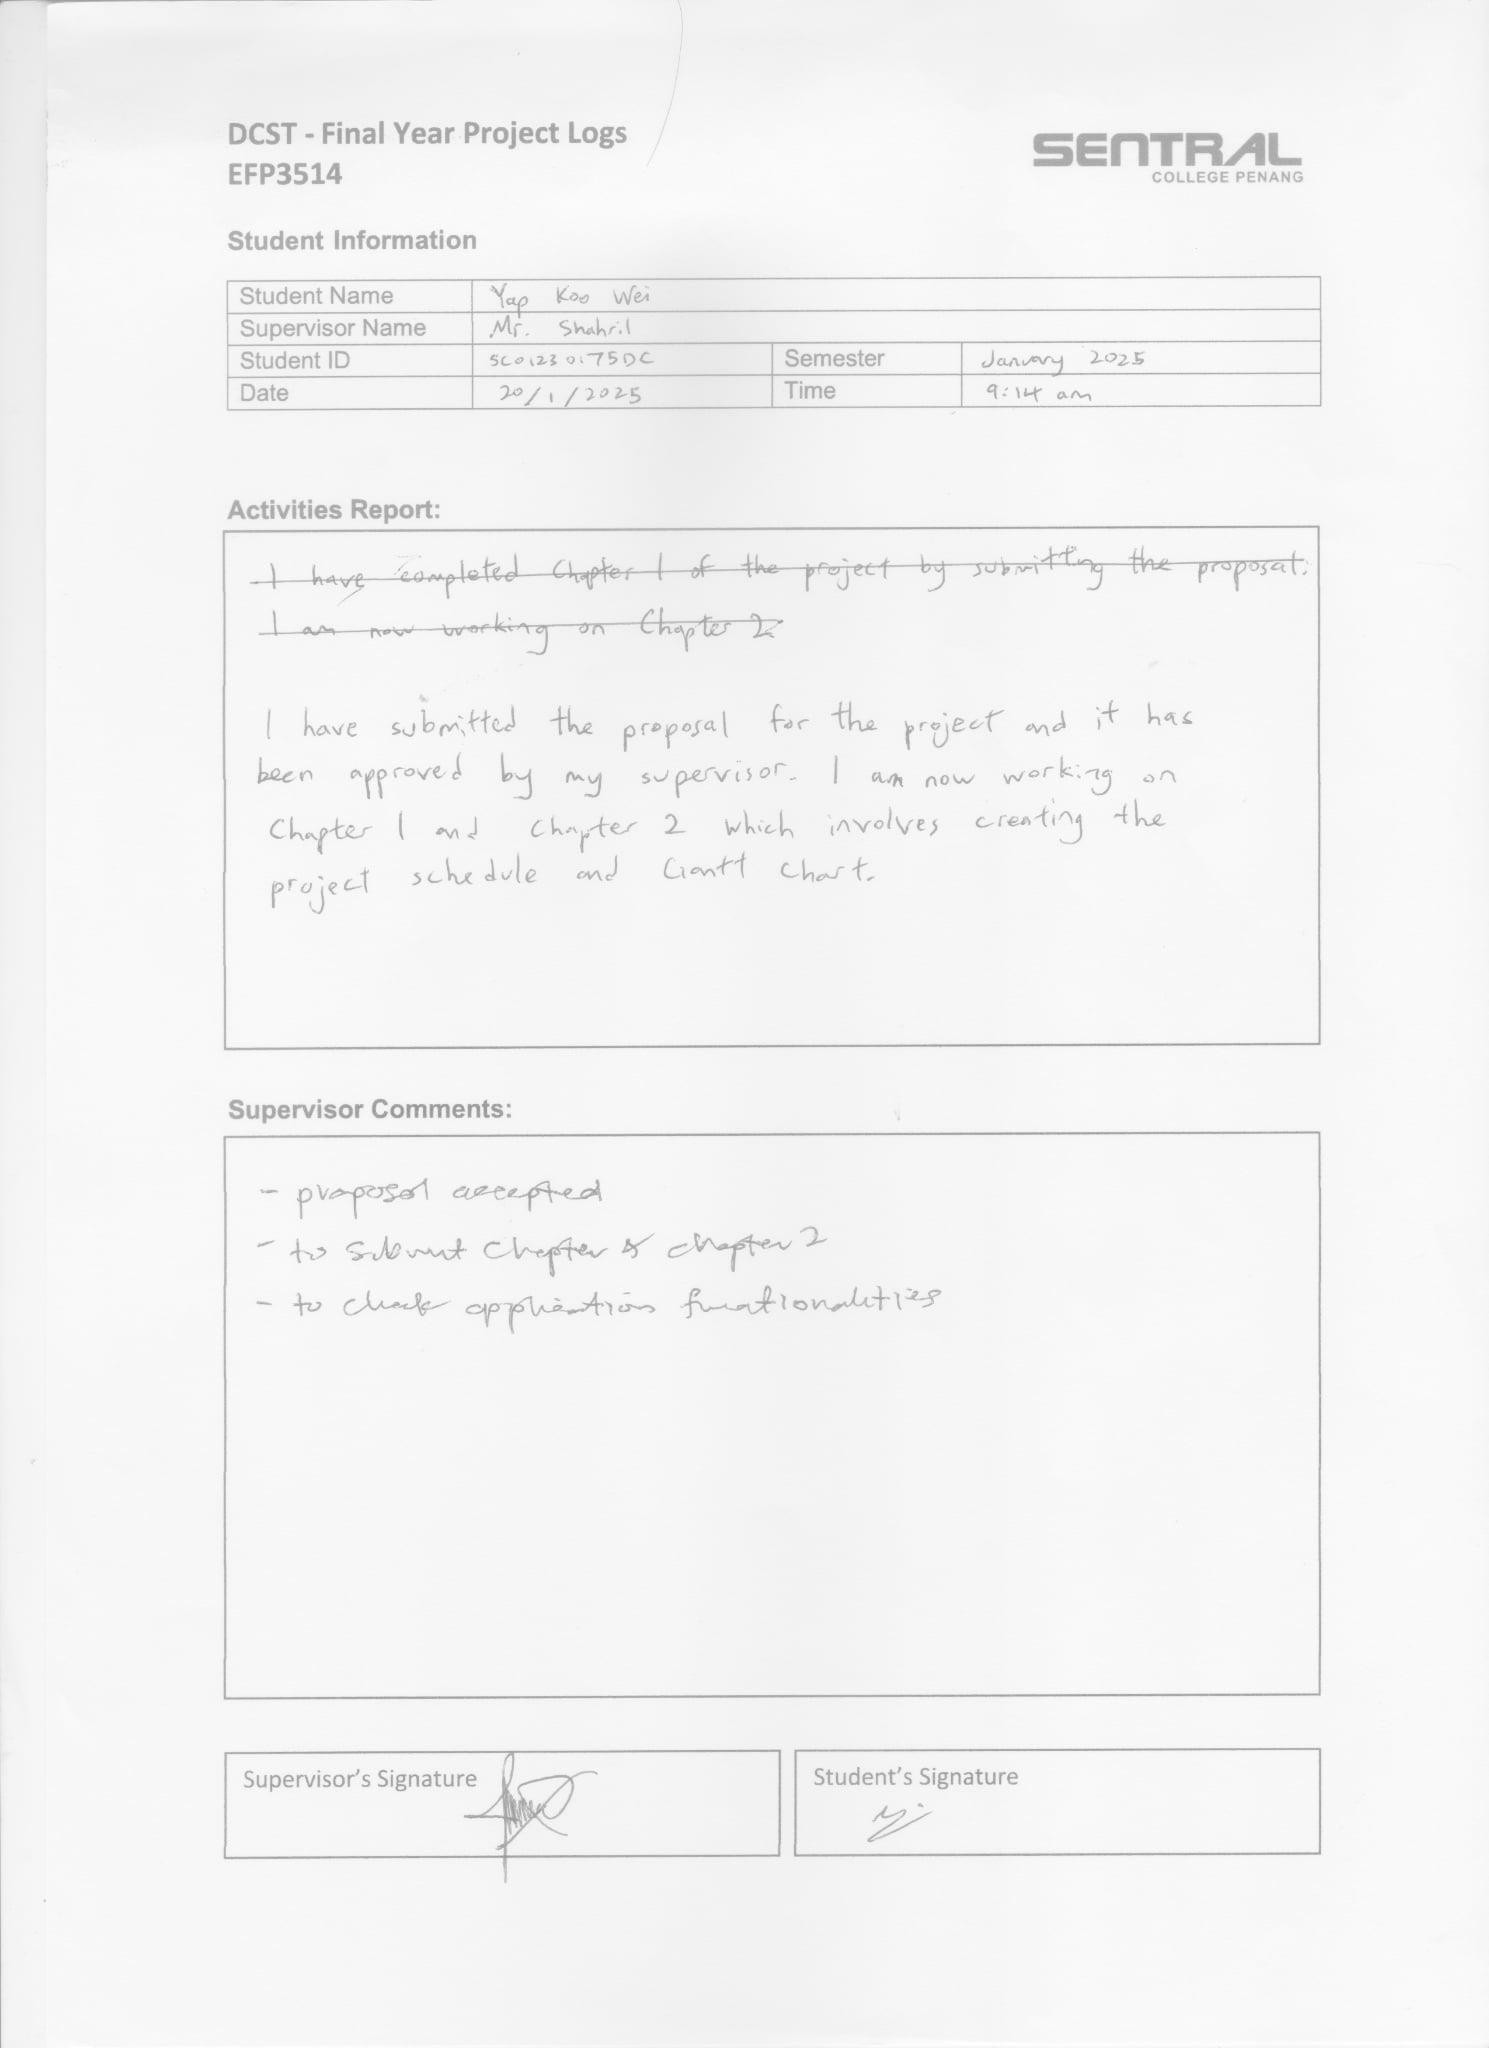 DCST - Final Year Project Logs
EFP3514
SENTRAL
COLLEGE PENANG
Student Information
Student Name Yap Koo Wei
Supervisor Name Mr. Shahril
Student ID SC01230175DC Semester January 2025
Date 20/1/2025 Time 9:14 am
Activities Report:
I have completed Chapter 1 of the project by submitting the proposal.
I am now working on Chapter 2
I have submitted the proposal for the project and it has
been approved by my supervisor. I am now working on
Chapter 1 and Chapter 2 which involves creating the
project schedule and Gantt Chart.
Supervisor Comments:
- proposal accepted
- to submit Chapter & chapter 2
- to check application functionalities
Supervisor's Signature
Student's Signature